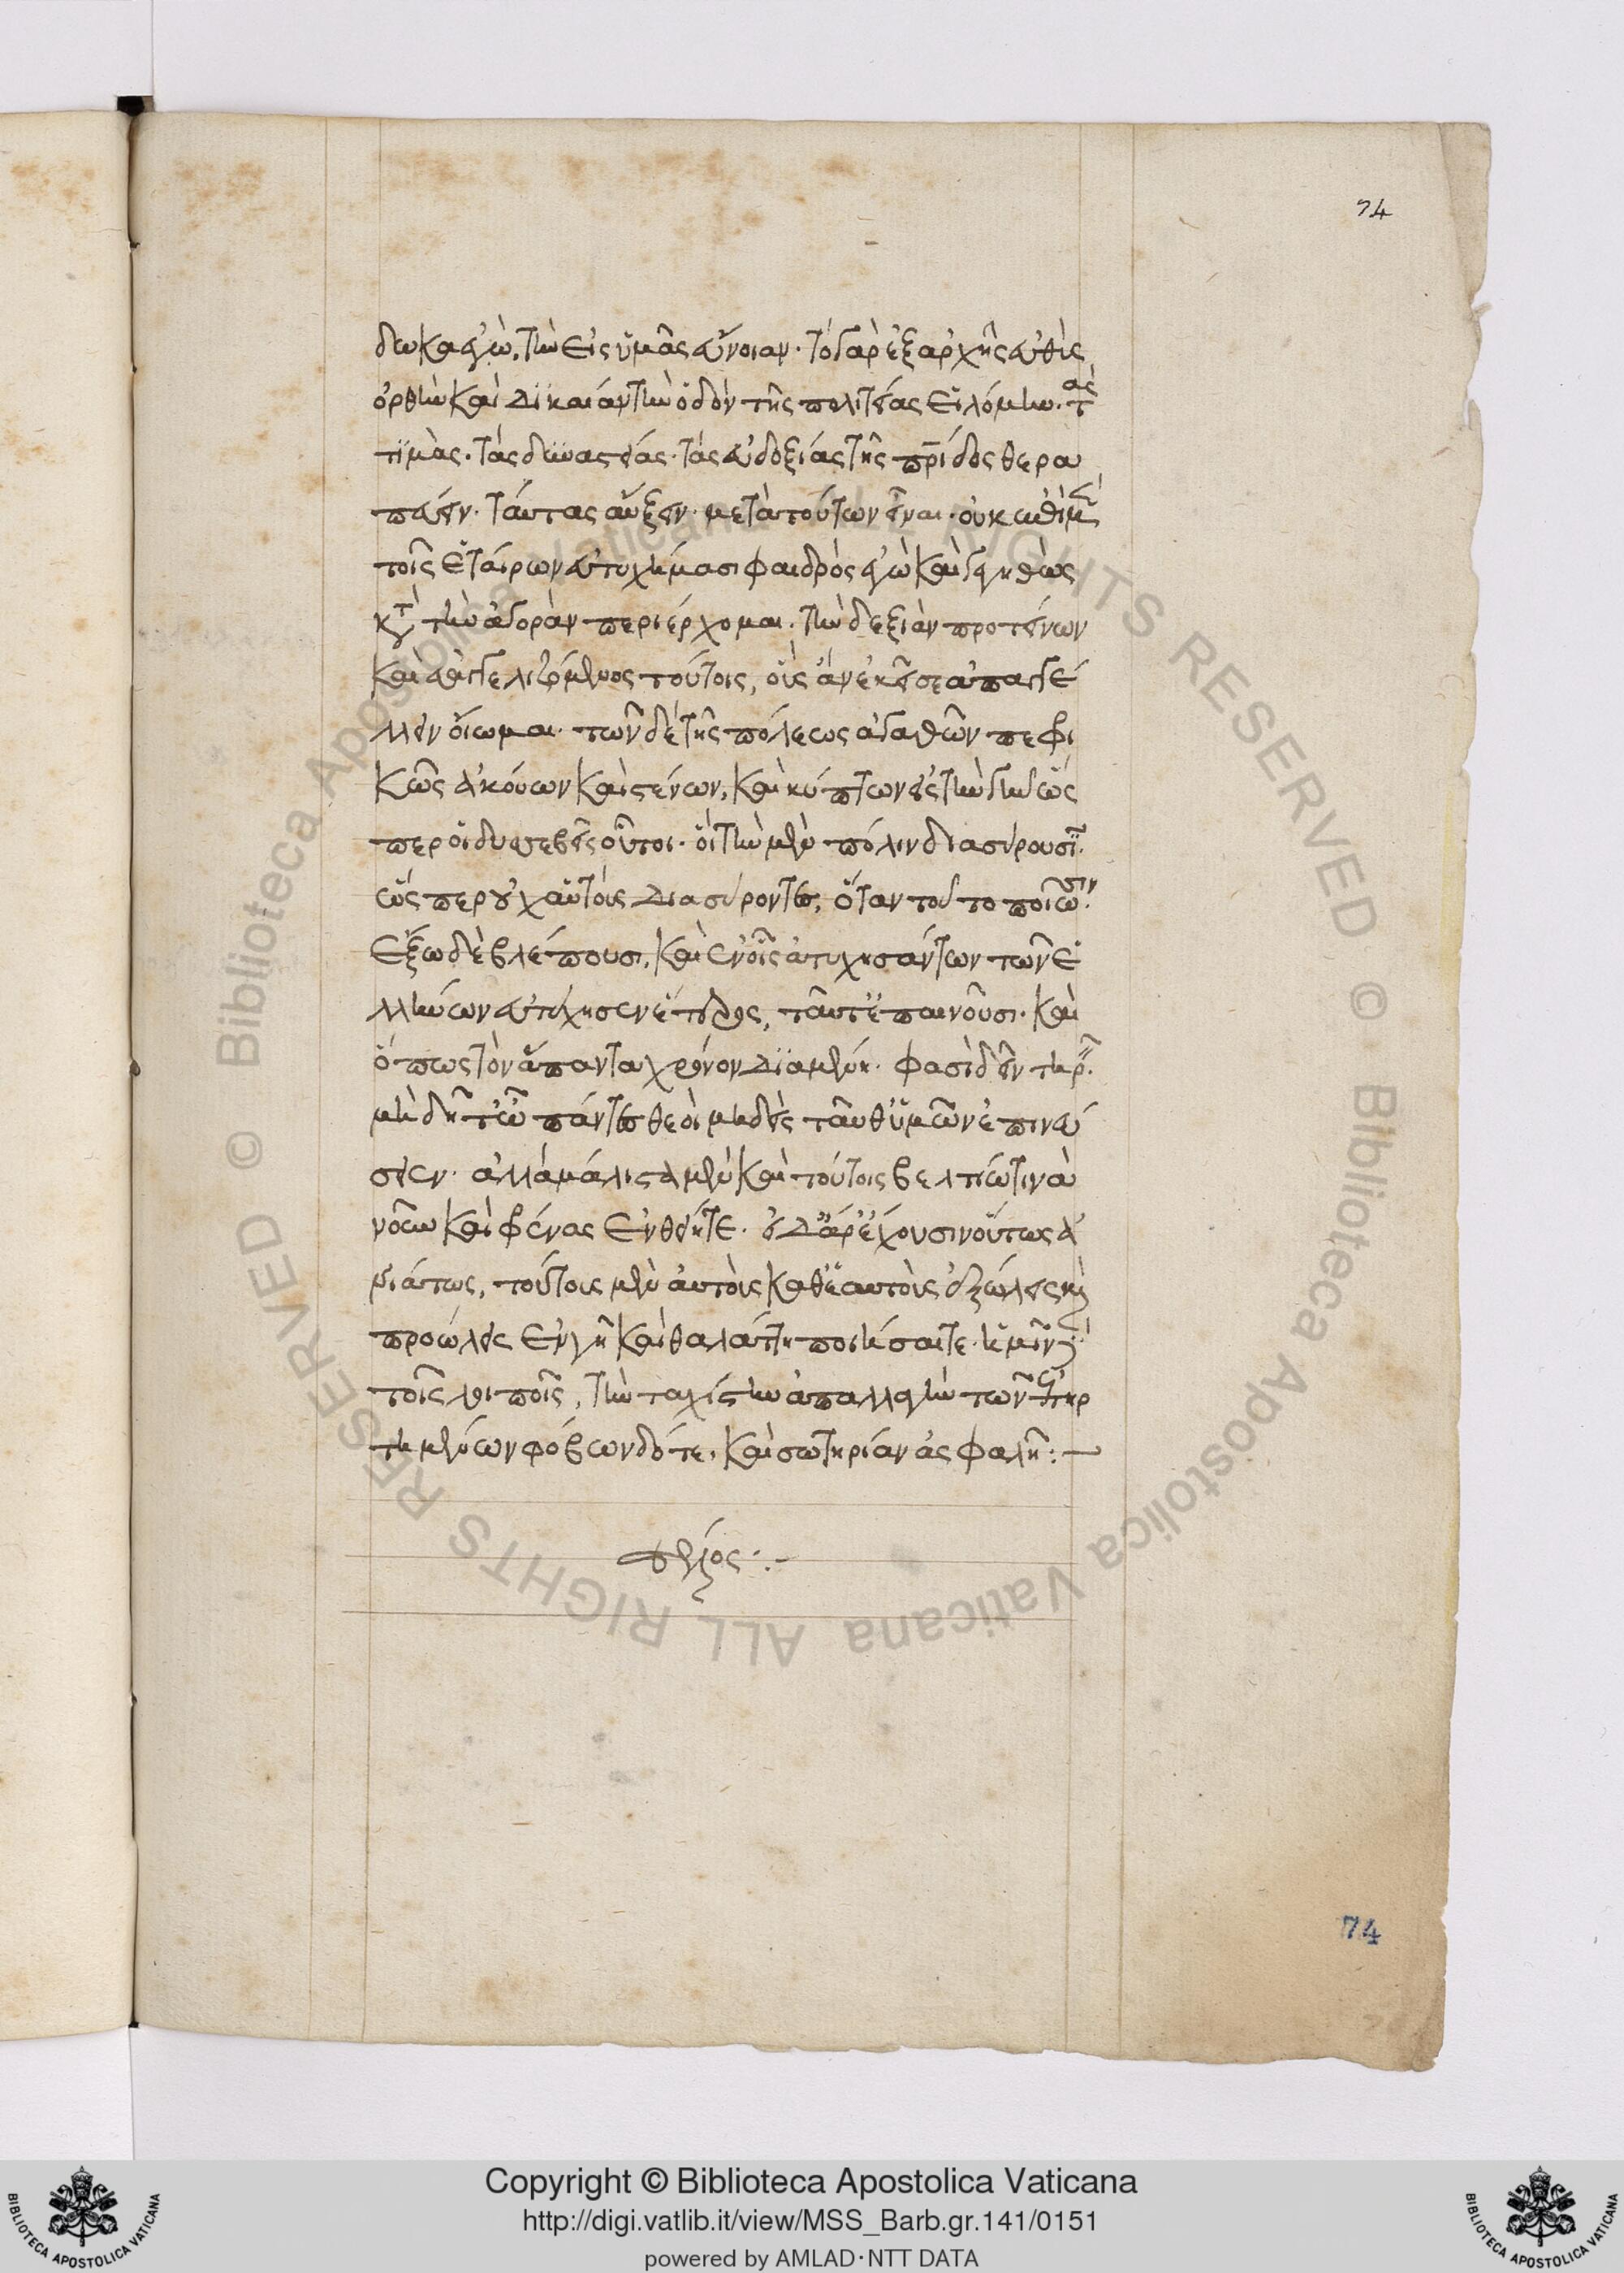 74
δωκα ἐγὼ, τὴν εἰς ὑμᾶς εὔνοιαν· τὸ γὰρ ἐξαρχῆς εὐθὺς
ὀρθὴν καὶ δικαίαν τὴν ὁδὸν τῆς πολιτείας εἱλόμην· τὰς
τιμὰς· τὰς δυναστείας· τὰς εὐδοξίας τῆς πρίδος θερα
πεύειν· ταύτας αὔξειν· μετὰ τούτων εἶναι· οὐκ ἐπὶ μὲν
τοῖς ἑταίρων εὐτυχήμασι φαιδρὸς ἐγὼ καὶ γεγηθὼς
κτ τὴν ἀγορὰν περιέρχομαι· τὴν δεξιὰν προτείνων
καὶ εὐαγγελιζόμενος τούτοις, οὓς ἂν ἐκεῖσε ἀπαγγέ
λλειν οἴωμαι· τῶν δὲ τῆς πόλεως ἀγαθῶν πεφρι
κὼς ἀκούων καὶ στένων, καὶ κύπτων εἰς τὴν γῆν ὥς
περ οἱ δυσεβεῖς οὗτοι· οἳ τὴν μὲν πόλιν διασύρουσιν·
ὥςπερ οὐχ αὑτοὺς διασύροντες, ὅταν τοῦτο ποιῶσιν·
ἔξω δὲ βλέπουσι, καὶ ἐν οἷς ἀτυχησάντων τῶν ἑ
λλήνων εὐτύχησεν ἕτερος, ταῦτ' ἐπαινοῦσι· καὶ
ὅπως τὸν ἅπαντα χρόνον διαμένῃ· φασὶ δεῖν τηρεῖν·
μὴ δῆτ' ὦ πάντες θεοὶ μηδεὶς ταῦθ' ὑμῶν ἐπινεύ
σειεν· ἀλλὰ μάλιστα μὲν καὶ τούτοις βελτίω τινὰ
νοῦν καὶ φρένας ἐνθείητε· εἰ δ' ἄρ' ἔχουσιν οὕτως ἀ
νιάτως, τούτους μὲν αὐτοὺς καθ' ἑαυτοὺς ἐξώλεις καὶ
προώλεις ἐν γῇ καὶ θαλάττῃ ποιήσαιτε· ἡμῖν δὲ
τοῖς λοιποῖς, τὴν ταχίστην ἀπαλλαγὴν τῶν ἐπηρ
τημένων φόβων δότε, καὶ σωτηρίαν ἀσφαλῆ:—
τέλος:—
74
Copyright © Biblioteca Apostolica Vaticana
http://digi.vatlib.it/view/MSS_Barb.gr.141/0151
powered by AMLAD·NTT DATA
BIBLIOTECA APOSTOLICA VATICANA
BIBLIOTECA APOSTOLICA VATICANA
© Biblioteca Apostolica Vaticana ALL RIGHTS RESERVED
© Biblioteca Apostolica Vaticana ALL RIGHTS RESERVED